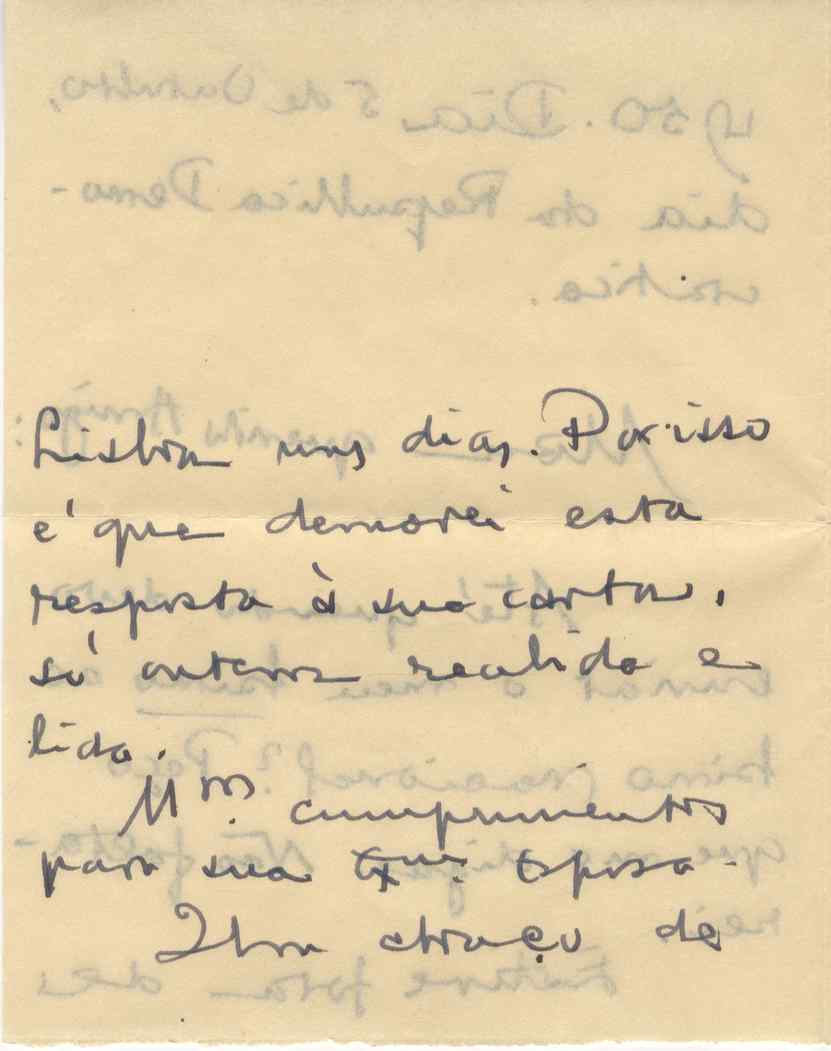 Lisboa uns dias. Por isso
é que demorei esta
resposta à sua carta,
só ontem recebida e
lida.
Mtos. cumprimentos
para sua Exma. Esposa.
Um abraço de